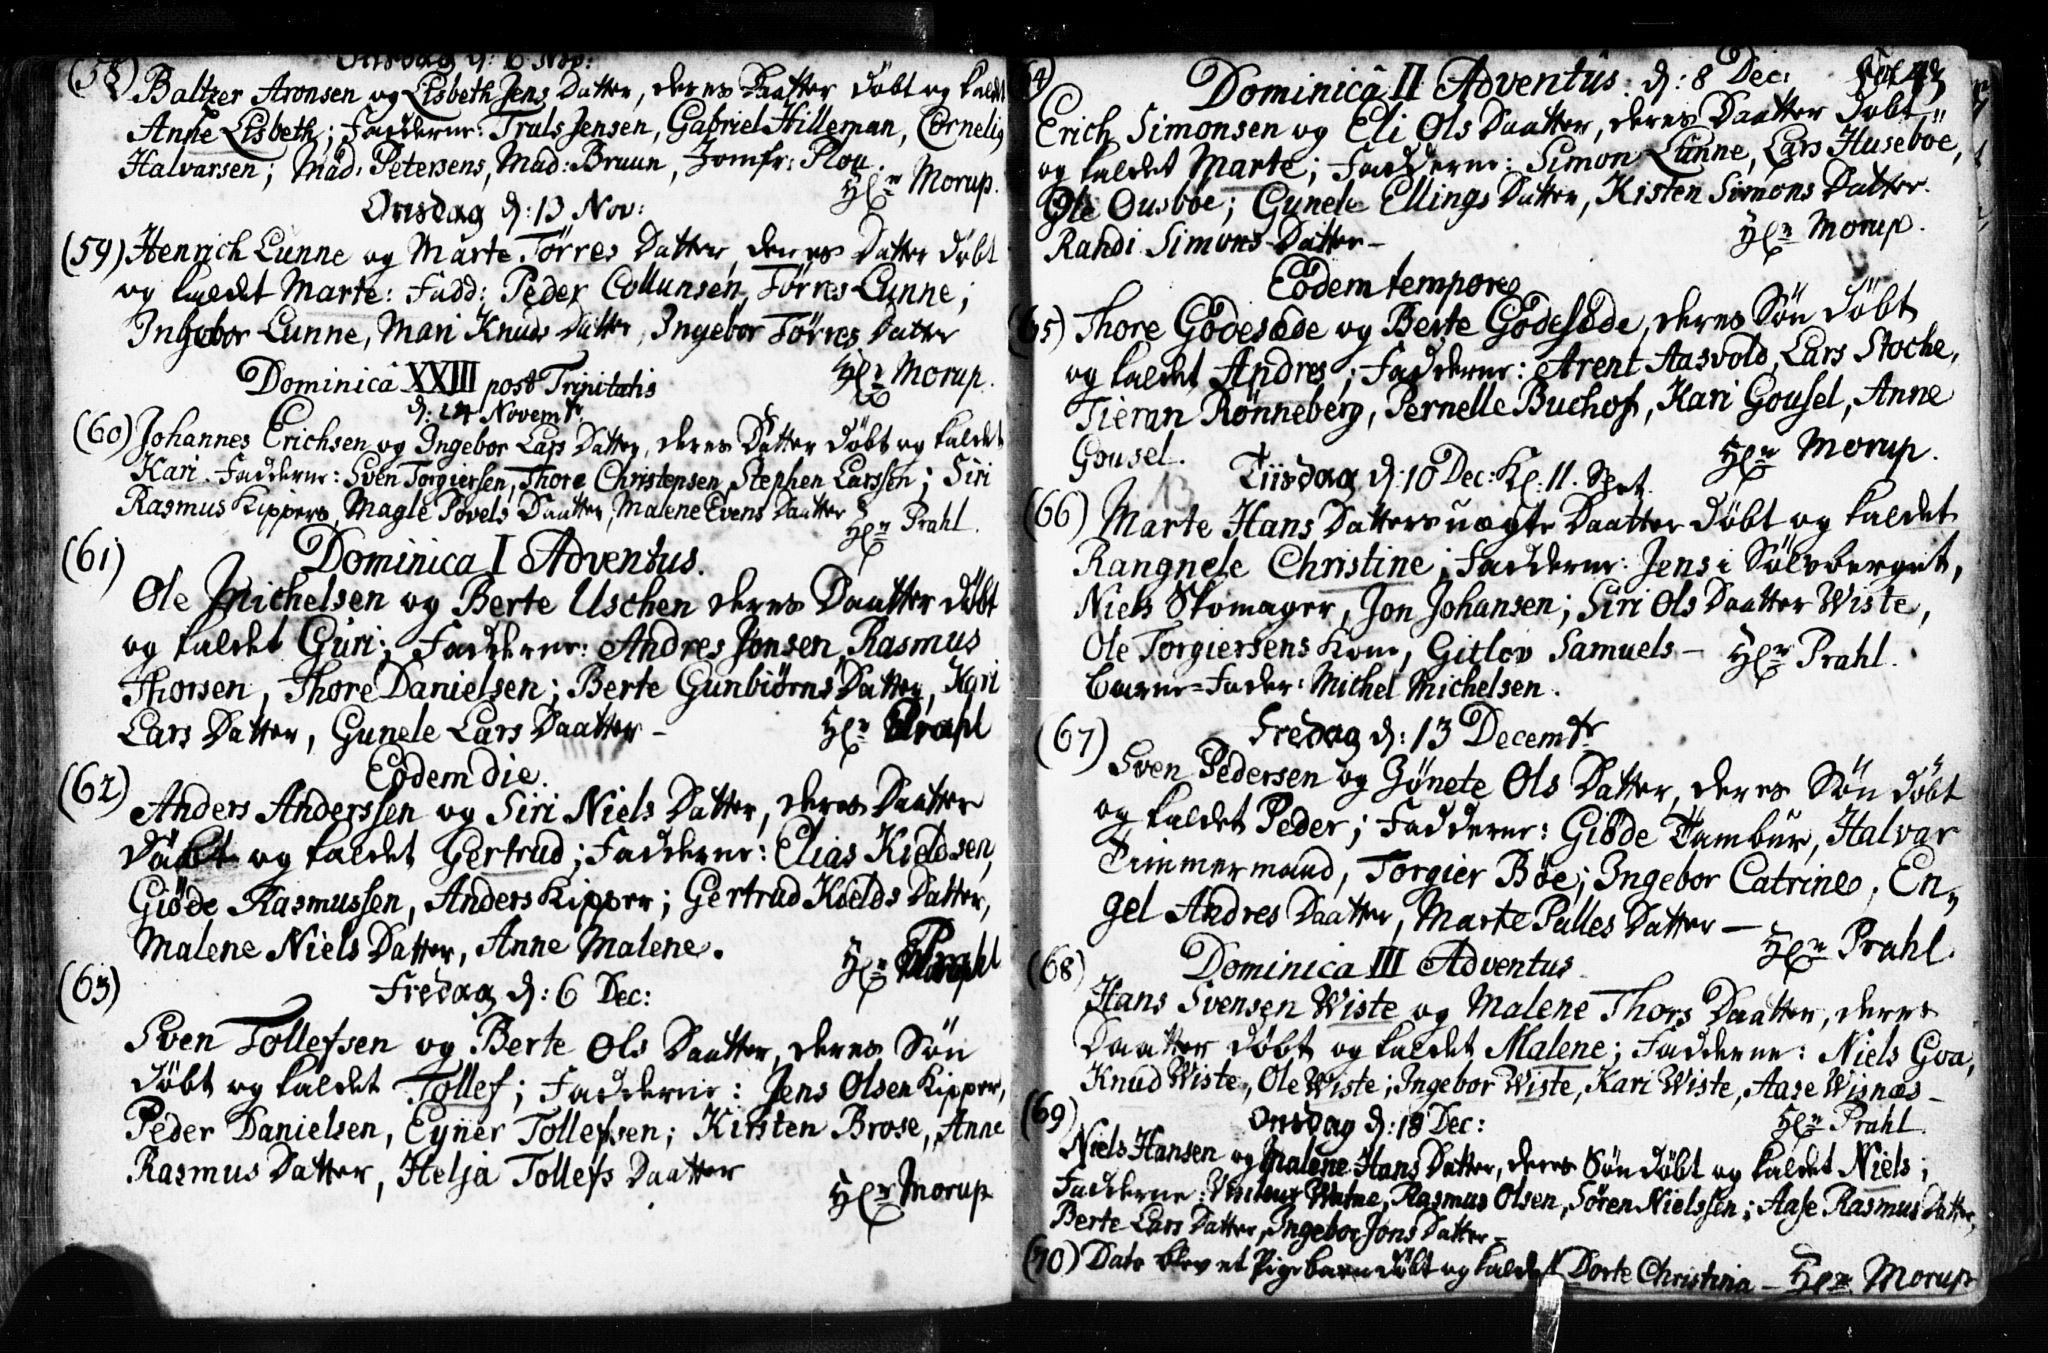 Onsdag d: 6 Nov:
(58) Baltzer Aronsen og Lisbeth Jens Datter, deres Datter Døbt og kaldet
Anne Lisbeth; Fadderne: Truls Jensen, Gabriel Hilleman, Cornelig
Halvarsen; Mad: Petersens, Mad: Bruun, Jomfr: Plou.
Hr Morup.
Onsdag d: 13 Nov:
(59) Henrich Lunne og Marte Tørres Datter, deres Datter Døbt
og kaldet Marte: Fadd: Peder Collunsen, Tørres Lunne;
Ingebor Lunne, Mari Knuds Datter, Ingebor Tørres Datter
Hr Morup.
Dominica XXIII post Trinitatis
d: 24 Novembr
(60) Johannes Erichsen og Ingebor Lars Datter, deres Datter Døbt og kaldet
Kari. Fadderne: Sven Torgiersen, Thore Christensen, Stephen Larssen; Siri
Rasmus Kippers, Magle Povels Daatter, Malene Evens Daatter
Hr Prahl.
(61) Dominica I Adventus.
Ole Michelsen og Berte Uschen deres Daatter Døbt
og kaldet Guri; Fadderne: Andres Jonsen Rasmus
Thorsen, Thore Danielsen; Berte Gunbiørns Datter, Kari
Lars Datter, Gunele Lars Daatter –
Hr Prahl
Eodem die.
(62) Anders Anderssen og Siri Niels Datter, deres Daatter
Døbt og kaldet Gertrud; Fadderne: Elias Kieldsen,
Giøde Rasmussen, Anders Kipper; Gertrud Kields Datter,
Malene Niels Datter, Anne Malene.
Hr Prahl
(63) Fredag d: 6 Dec:
Sven Tollefsen og Berte Ols Daatter, deres Søn
Døbt og kaldet Tollef; Fadderne: Jens Olsen Kipper,
Peder Danielsen, Eyner Tollefsen; Kirsten Brose, Anne
Rasmus Datter, Helja Tollefs Daatter
Hr Morup
(64) Dominica II Adventus. d: 8 Dec: Fol 43
Erich Simonsen og Eli Ols Daatter, deres Daatter Døbt
og kaldet Marte; Fadderne: Simon Lunne, Lars Huseboe,
Ole Ousbøe; Gunele Ellings Datter, Kisten Simons Datter
Randi Simons Datter –
Hr Morup.
Eodem tempore
(65) Thore Godesæde og Berte Godesæde, deres Søn Døbt
og kaldet Andres; Fadderne: Arent Aasvold, Lars Stocke,
Tieran Rønneberg, Pernelle Buchof, Kari Gousel, Anne
Gousel.
Hr Morup.
Tiisdag d: 10 Dec: Kl: 11.
(66) Marte Hans Datters uægte Daatter Døbt og kaldet
Rangnele Christine; Fadderne: Jens i Sølvberget,
Niels Skomager, Jon Johansen; Siri Ols Daatter Wiste,
Ole Torgiersens Kone, Gitlov Samuels –
Hr Prahl.
Barne-Fader: Michel Michelsen.
(67) Fredag d: 13 Decembr
Sven Pedersen og Jønete Ols Datter, deres Søn Døbt
og kaldet Peder; Fadderne: Giøde Tambur, Halvar
Timmermand, Torgier Bøe; Ingebor Catrine, En-
gel Andres Daatter, Marte Palles Datter –
Hr Prahl.
(68) Dominica III Adventus
Hans Svensen Wiste og Malene Thors Daatter, deres
Daatter Døbt og kaldet Malene; Fadderne: Niels Goa,
Knud Wiste, Ole Wiste; Ingebor Wiste, Kari Wiste, Aase Wisnæs –
Hr Prahl.
(69) Onsdag d: 18 Dec:
Niels Hansen og Malene Hans Datter, deres Søn Døbt og kaldet Niels;
Fadderne: Rasmus Olsen, Søren Nielssen; Aase Rasmus Datter,
Berte Lars Datter, Ingebor Jons Datter –
(70) Dato blev et Pigebarn døbt og kaldet Dorte Christina – Hr Morup